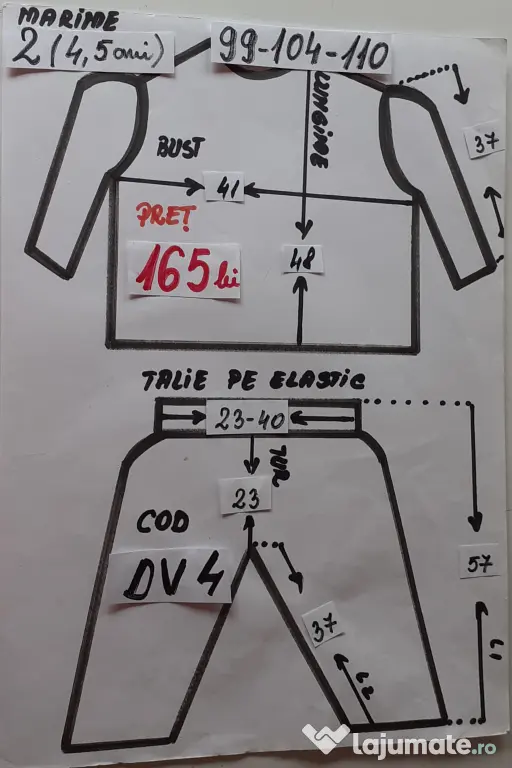 MARIME
2 (4,5 ani)
99-104-110
LUNGIME
37
BUST
41
PREȚ
165 lei
48
TALIE PE ELASTIC
23-40
TUR
23
COD
DV4
57
37
L2
L1
lajumate.ro